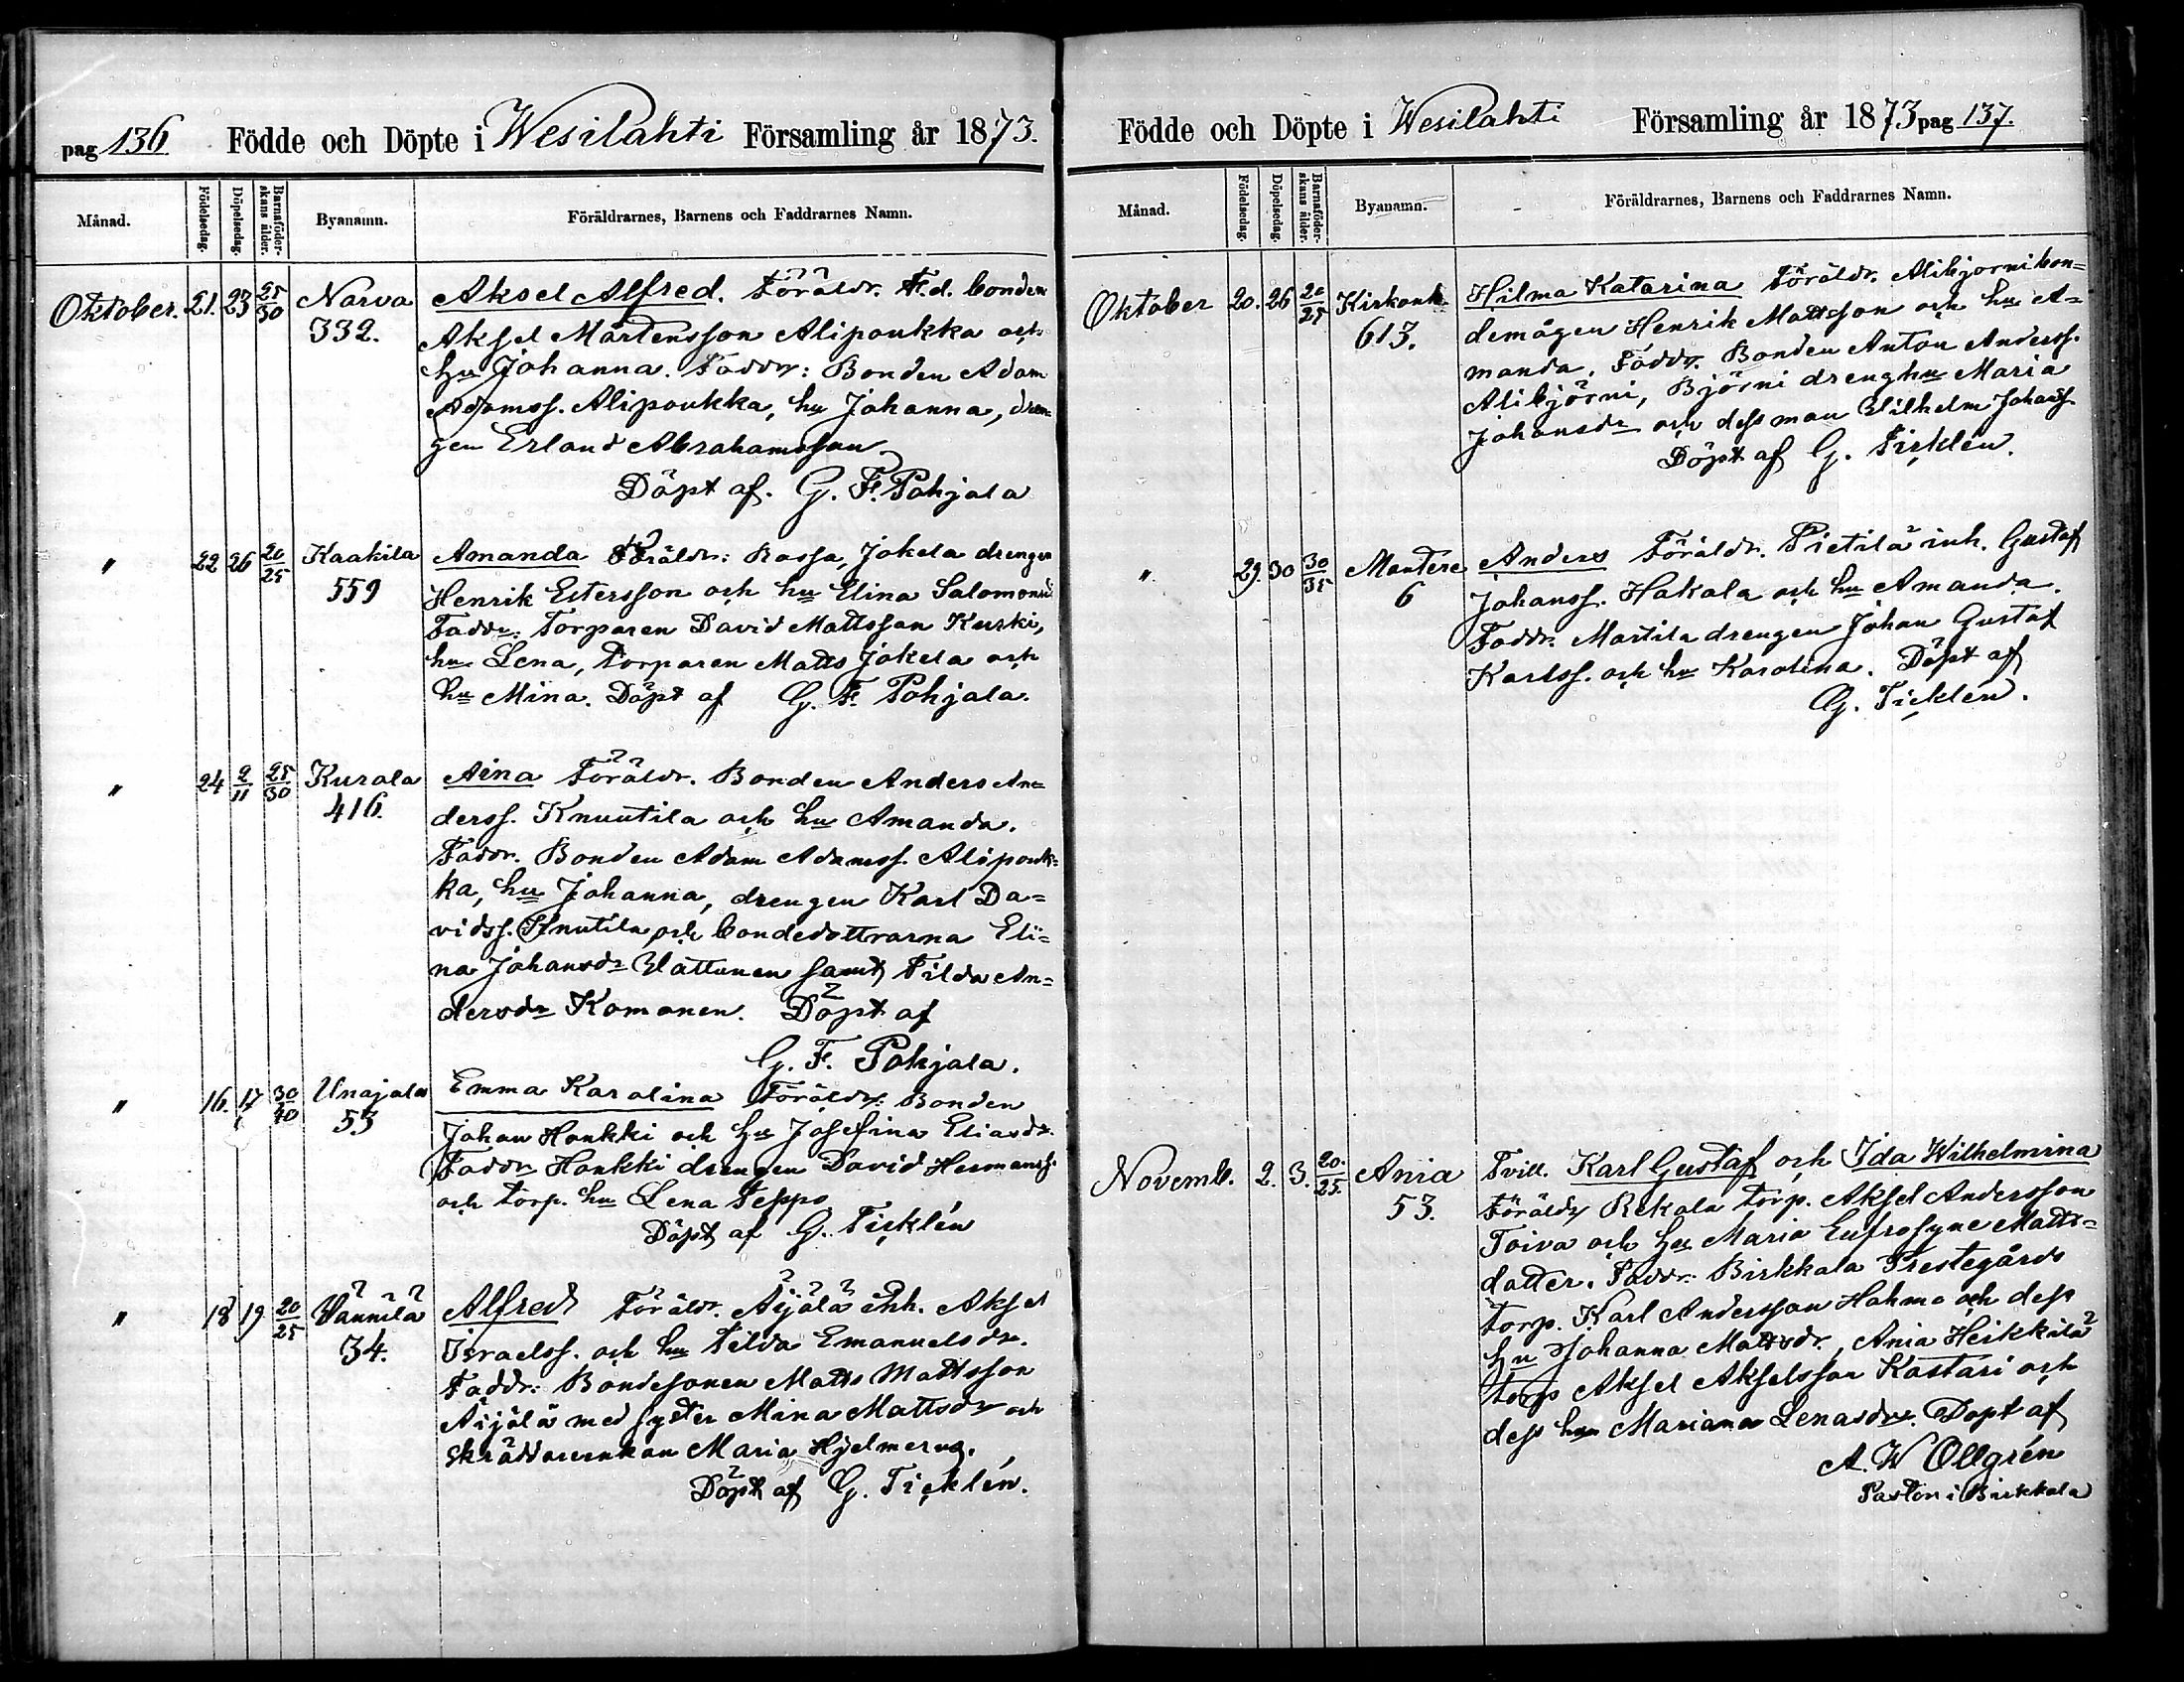 pag 136. Födde och Döpte i Wesilahti Församling år 1873.
Månad. Födelsedag. Döpelsedag. Barnaföderskans ålder. Byanamn. Föräldrarnes, Barnens och Faddrarnes Namn.
Oktober. 21. 23 25/30 Narva Aksel Alfred. Föräldr. F.d. bonden
332. Aksel Mårtensson Alipoukka och
hu Johanna. Faddr: Bonden Adam
Adamss. Alipoukka, hu Johanna, dren-
gen Erland Abrahamsson
Döpt af. G. F. Pohjala
" 22 26 20/25 Kaakila Amanda Föräldr: Rassa, Jokela drengen
559 Henrik Estersson och hu Elina Salomonsd
Faddr: Torparen David Mattsson Kurki,
hu Lena, torparen Matts Jokela och
hu Mina. Döpt af G. F. Pohjala.
" 24 2/11 25/30 Kurala Aina Föräldr. Bonden Anders An=
416. derss. Knuutila och hu Amanda.
Faddr. Bonden Adam Adamss. Alipouk=
ka, hu Johanna, drengen Karl Da=
vidss. Knutila och bondedottrarna Eli=
na Johansdr Wattunen samt Tilda An=
dersdr Komonen. Döpt af
G. F. Pohjala.
" 16. 17 30/40 Unajala Emma Karolina Föräldr: Bonden
53 Johan Honkki och hu Josefina Eliasdr.
Faddr Honkki drengen David Hermanss.
och torp. hu Lena Seppo
Döpt af G. Ticklén
" 18 19 20/25 Vännilä Alfred Föräldr. Äijälä inh. Aksel
34. Israelss. och hu Tilda Emanuelsdr.
Faddr: Bondesonen Matts Mattsson
Äijälä med syster Mina Mattsdr och
Skräddareenkan Maria Hjelmerus.
Döpt af G. Ticklén.
Födde och Döpte i Wesilahti Församling år 1873 pag 137.
Månad. Födelsedag. Döpelsedag. Barnaföderskans ålder. Byanamn. Föräldrarnes, Barnens och Faddrarnes Namn.
Oktober 20. 26 20/25 Kirkonk. Hilma Katarina Föräldr. Alibjorni bon=
613. demågen Henrik Mattsson och hu A=
manda. Faddr. Bonden Anton Anderss.
Alibjörni, Björni drenghu Maria
Johansdr och dess man Wilhelm Johanss.
Döpt af G. Ticklén.
" 29. 30 30/35 Mantere Anders Föräldr. Pietilä inh. Gustaf
6 Johanss. Hakala och hu Amanda.
Faddr. Martila drengen Johan Gustaf
Karlss. och hu Karolina. Döpt af
G. Ticklén.
Novemb. 2. 3. 20./25. Ania Tvill. Karl Gustaf och Ida Wilhelmina
53. Föräldr Rekola torp. Aksel Andersson
Toiva och hu Maria Eufrosyne Matts=
datter. Faddr: Birkkala Prestegårds
torp. Karl Andersson Hahmo och dess
hu Johanna Mattsdr., Ania Heikkilä
torp Aksel Akselsson Kastari och
dess hu Mariana Lenasdr. Döpt af
A. W Ollgrén
Pastor i Birkkala